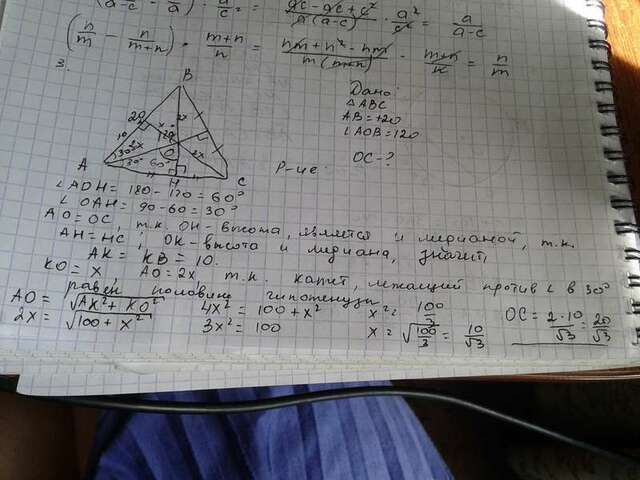 (a/(a-c) - a/a) · a/c = (ac - ac + c²)/(a(a-c)) · a²/c² = a/(a-c)
(n/m - n/(m+n)) · (m+n)/n = (nm + n² - nm)/(m(m+n)) · (m+n)/n = n/m
3.
B
Дано:
△ABC
AB = 20
∠AOB = 120
OC - ?
P-ие:
A
H
C
∠AOH = 180 - 120 = 60°
∠OAH = 90 - 60 = 30°
AO = OC, т.к. OH - высота, является и медианой, т.к.
AH = HC; OK - высота и медиана, значит,
AK = KB = 10.
KO = x, AO = 2x т.к. катит, лежащий против ∠ в 30°
равен половине гипотенузы
AO = √AK² + KO²
2x = √100 + x²
4x² = 100 + x²
3x² = 100
x² = 100/3
x = √100/3 = 10/√3
OC = 2·10/√3 = 20/√3